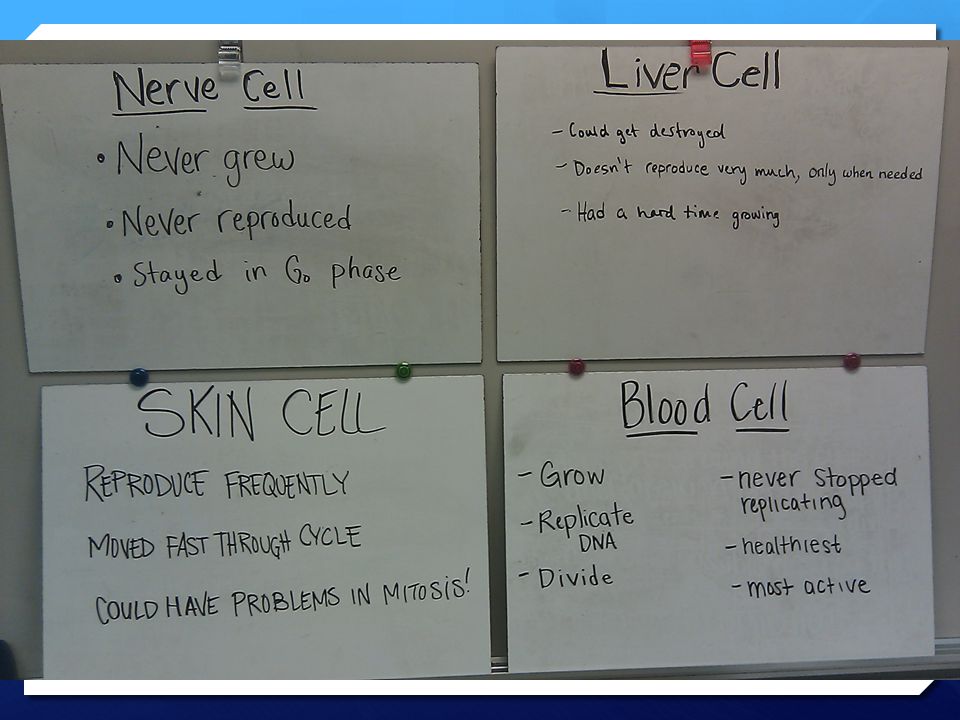 Nerve Cell
• Never grew
• Never reproduced
• Stayed in G₀ phase
Liver Cell
- Could get destroyed
- Doesn't reproduce very much, only when needed
- Had a hard time growing
SKIN CELL
REPRODUCE FREQUENTLY
MOVED FAST THROUGH CYCLE
COULD HAVE PROBLEMS IN MITOSIS!
Blood Cell
- Grow
- Replicate
DNA
- Divide
- never stopped
replicating
- healthiest
- most active